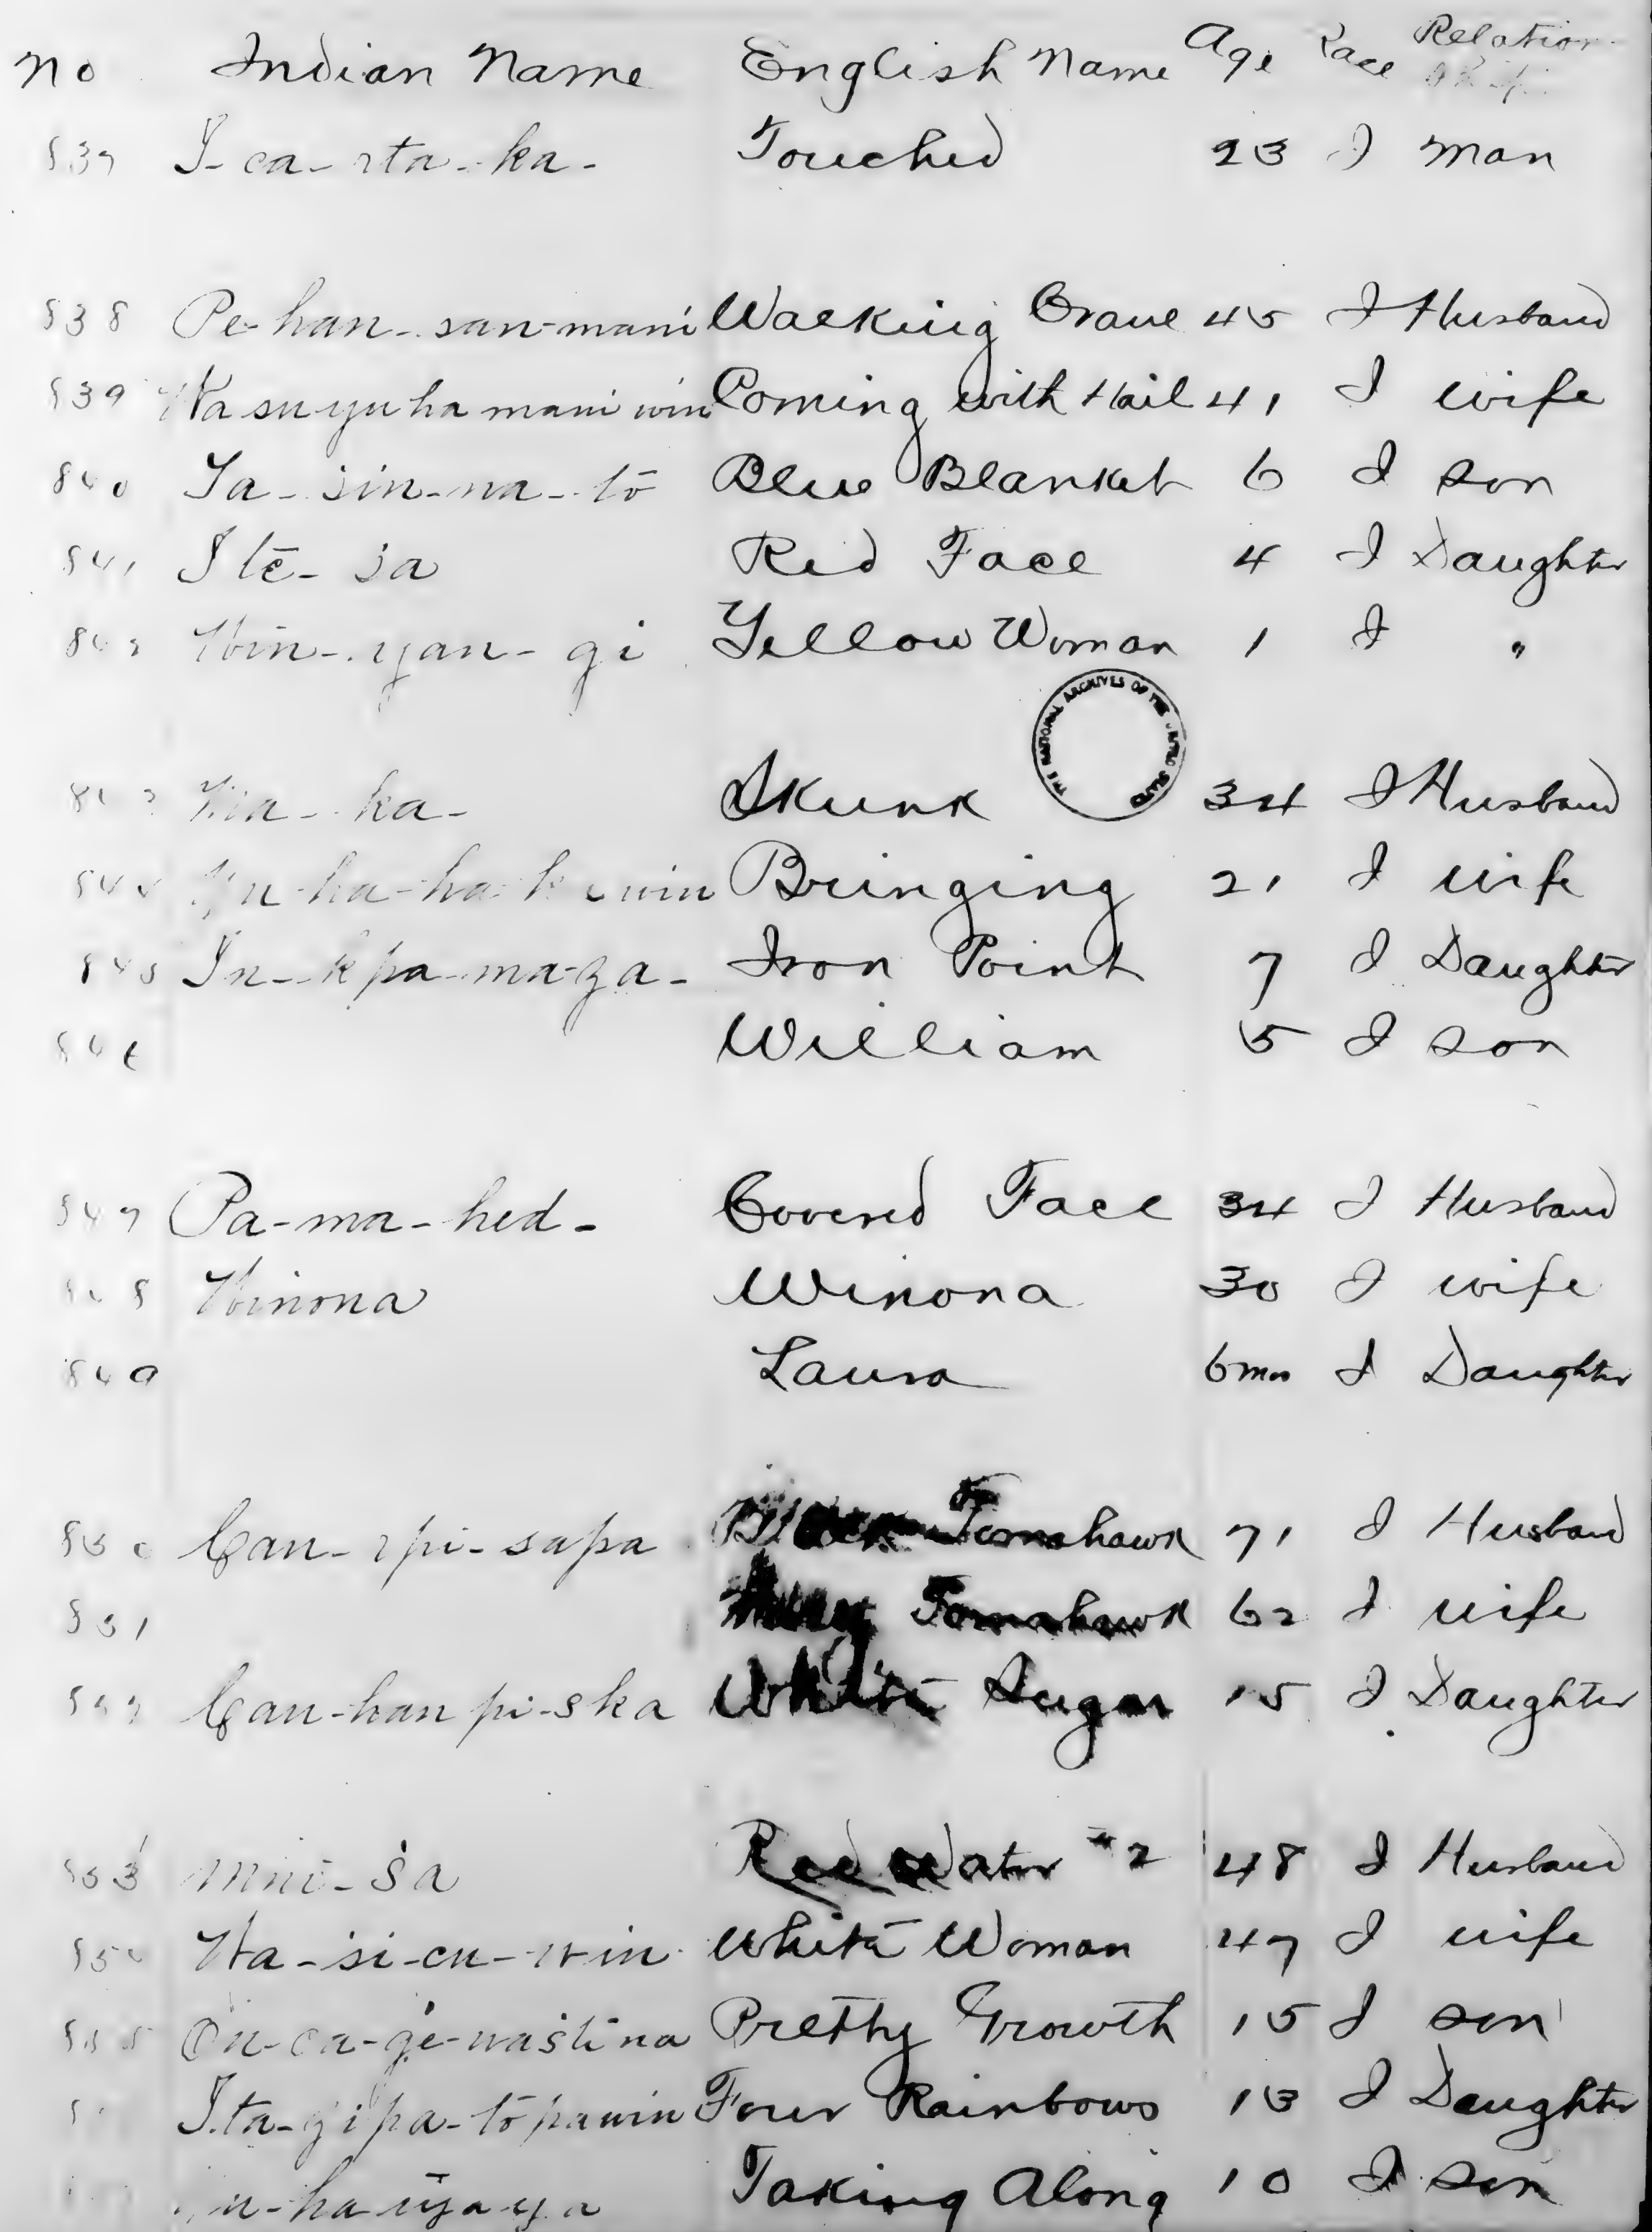 No Indian Name English Name Age Race Relation ship
837 I-ca-rta-ka- Touched 23 I Man
838 Pe-han-san-mani Walking Crane 45 I Husband
839 Wa su yu ha mani win Coming with Hail 41 I wife
840 Ta-sin-na-to Blue Blanket 6 I son
841 Ite-sa Red Face 4 I Daughter
842 Win-yan-gi Yellow Woman 1 I "
THE NATIONAL ARCHIVES OF THE UNITED STATES
843 Ma-ka- Skunk 34 I Husband
844 Yu-ha-ha win Bringing 21 I wife
845 In-kpa-ma-za- Iron Point 7 I Daughter
846 William 5 I son
847 Pa-ma-hed- Covered Face 34 I Husband
848 Winona Winona 30 I wife
849 Laura 6mos I Daughter
850 Can-rpi-sapa Black Tomahawk 71 I Husband
851 Tomahawk 62 I wife
852 Can-han pi-ska White Sugar 15 I Daughter
853 Mni-sa Red Water #2 48 I Husband
854 Wa-si-cu-win White Woman 47 I wife
855 On-ca-ge-wastina Pretty Growth 15 I son
Ita-zipa-topawin Four Rainbows 13 I Daughter
Taking Along 10 I son